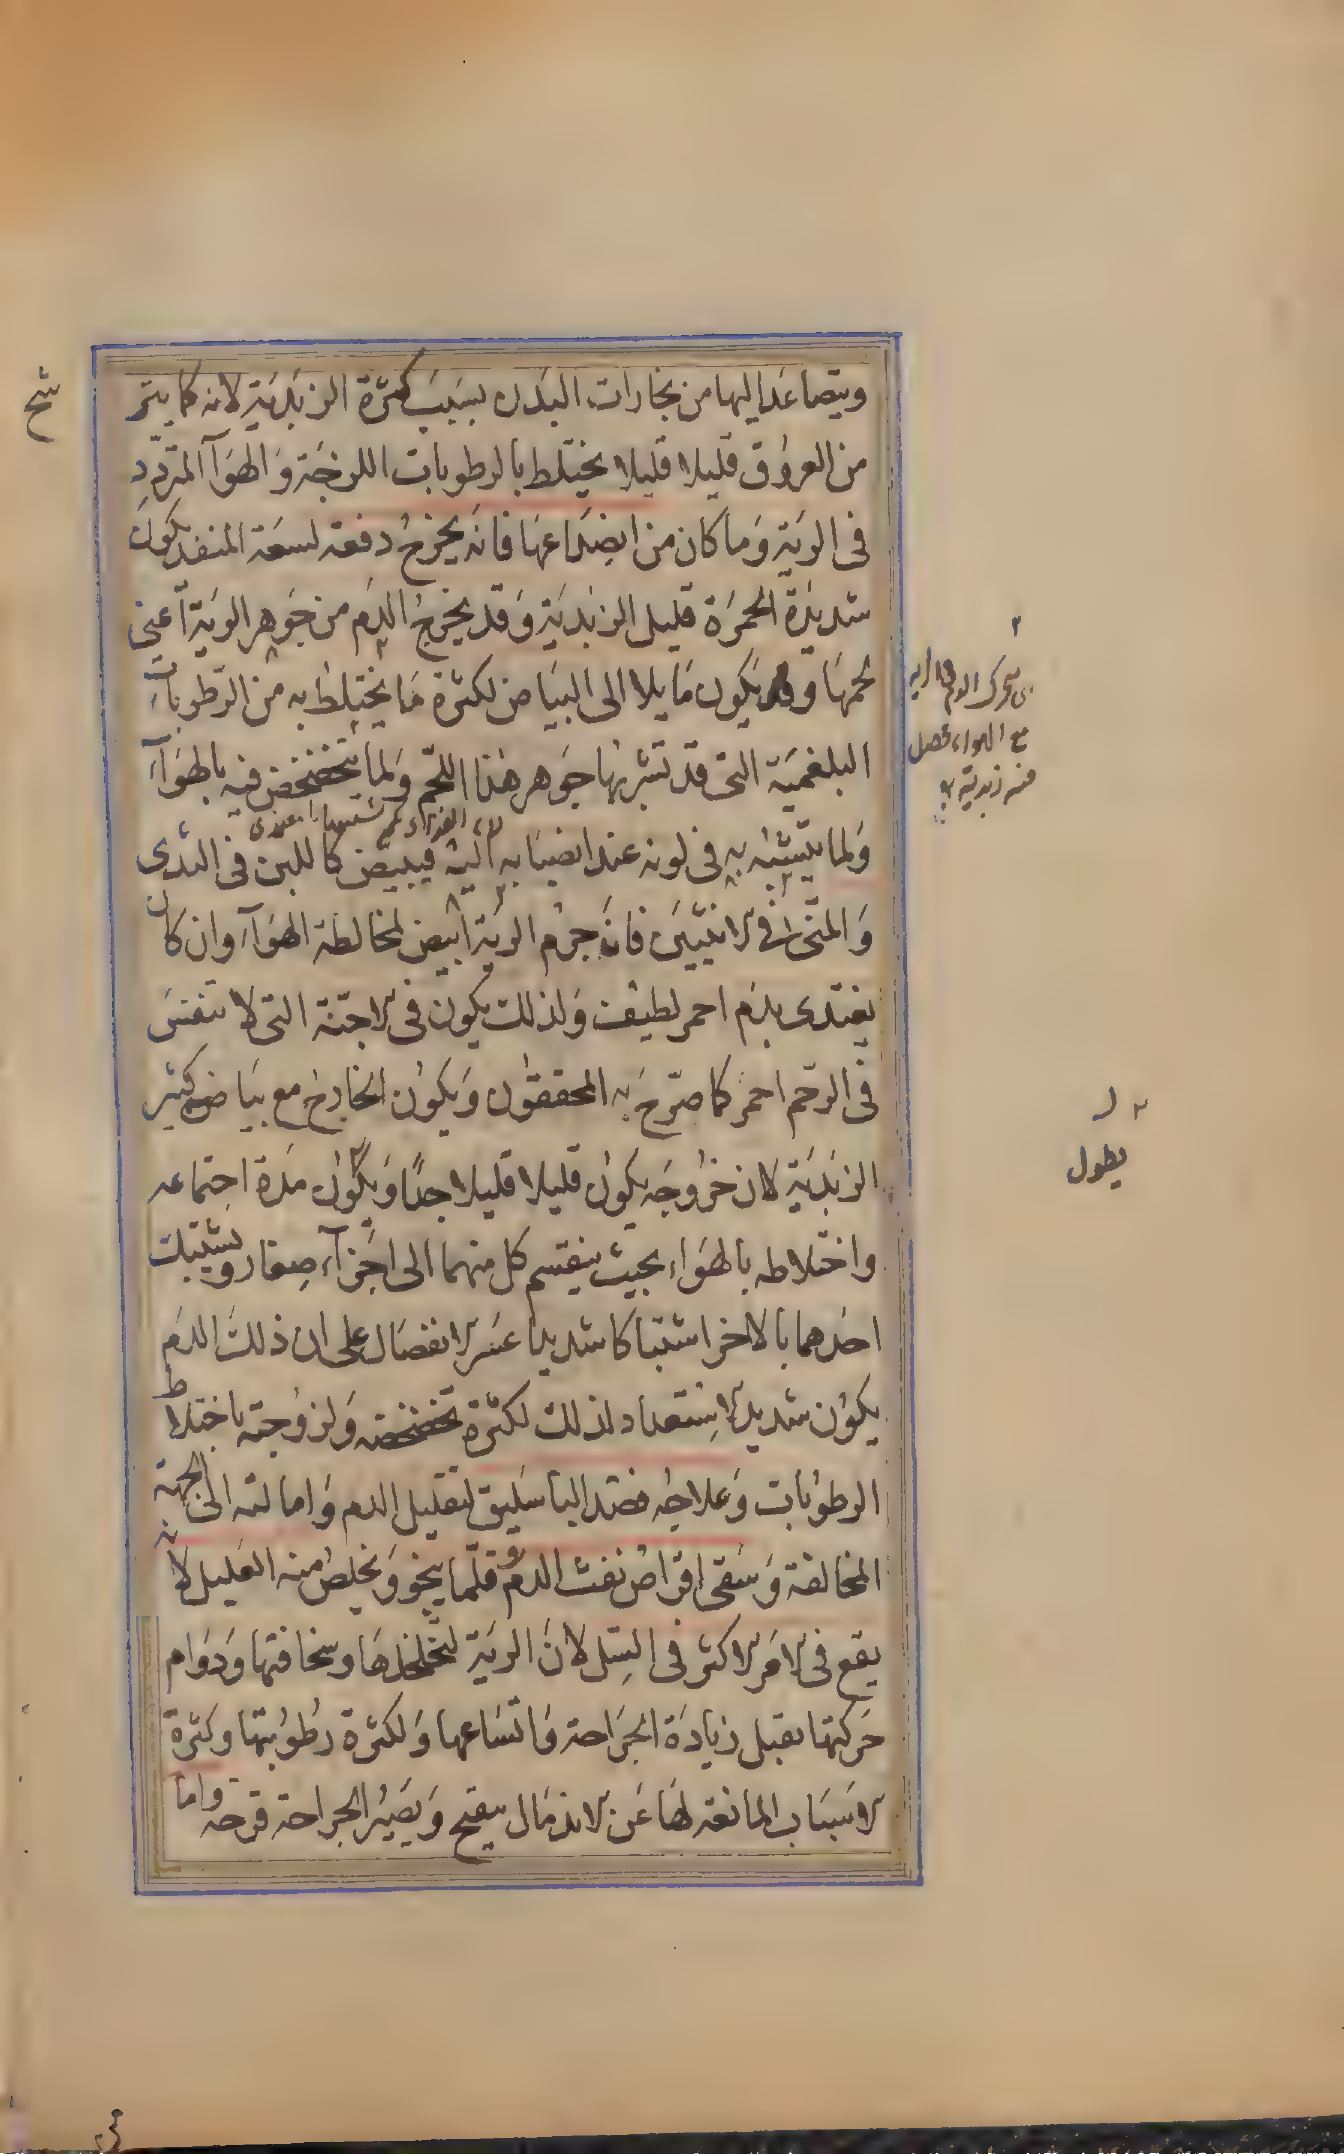 ويتصاعد اليها من بخارات البدن بسبب كثرة الزبدية لانه كما يتبر
من العروق قليلا قليلا يختلط بالرطوبات اللزجة والهوآ المتردد
فى الرية وما كان من انصداعها فانه يخرج دفعة لسعة المنفد يكون
شديدة الحمرة قليل الزبدية وقد يخرج الدم من جوهر الرية اعنى
لحمها وقد يكون مايلا الى البياض لكثرة ما يختلط به من الرطوبات
البلغمية التى قد تشربها جوهر هذا اللحم ولما يتخضخض فيه بالهوآء
ولما يتشبه به فى لونه عند انصبابه اليه فيبيض كاللبن فى الثدى
والمنى فى الانثيين فان جرم الرية ابيض لمخالطة الهوآء وان كان
يغتدى بدم احمر لطيف ولذلك يكون فى الاجنة التى لا تتنفس
فى الرحم احمر كما صرح به المحققون ويكون الخارج مع بياضه كثير
الزبدية لان خروجه يكون قليلا قليلا جدا ويكون مدة اجتماعه
واختلاطه بالهواء بحيث ينقسم كل منهما الى اجزآء صغار ويشتبك
احدهما بالاخر اشتباكا شديدا عسر الانفصال على ان ذلك الدم
يكون شديد الاستعداد لذلك لكثرة تخضخضه ولزوجته باختلاط
الرطوبات وعلاجه فصد الباسليق لتقليل الدم وامالته الى الجهة
المخالفة وسقى اقراص نفث الدم وقلما ينجو ويخلص منه العليل لانه
يقع فى الامر الاكثر فى السل لان الرية لتخلخلها وسخافتها ودوام
حركتها تقبل زيادة الجراحة واتساعها ولكثرة رطوبتها وكثرة
الاسباب المانعة لها عن الاندمال يتقيح ويصير الجراحة قرحة واما
مع الهواء فحصل
منه زبدية
يطول